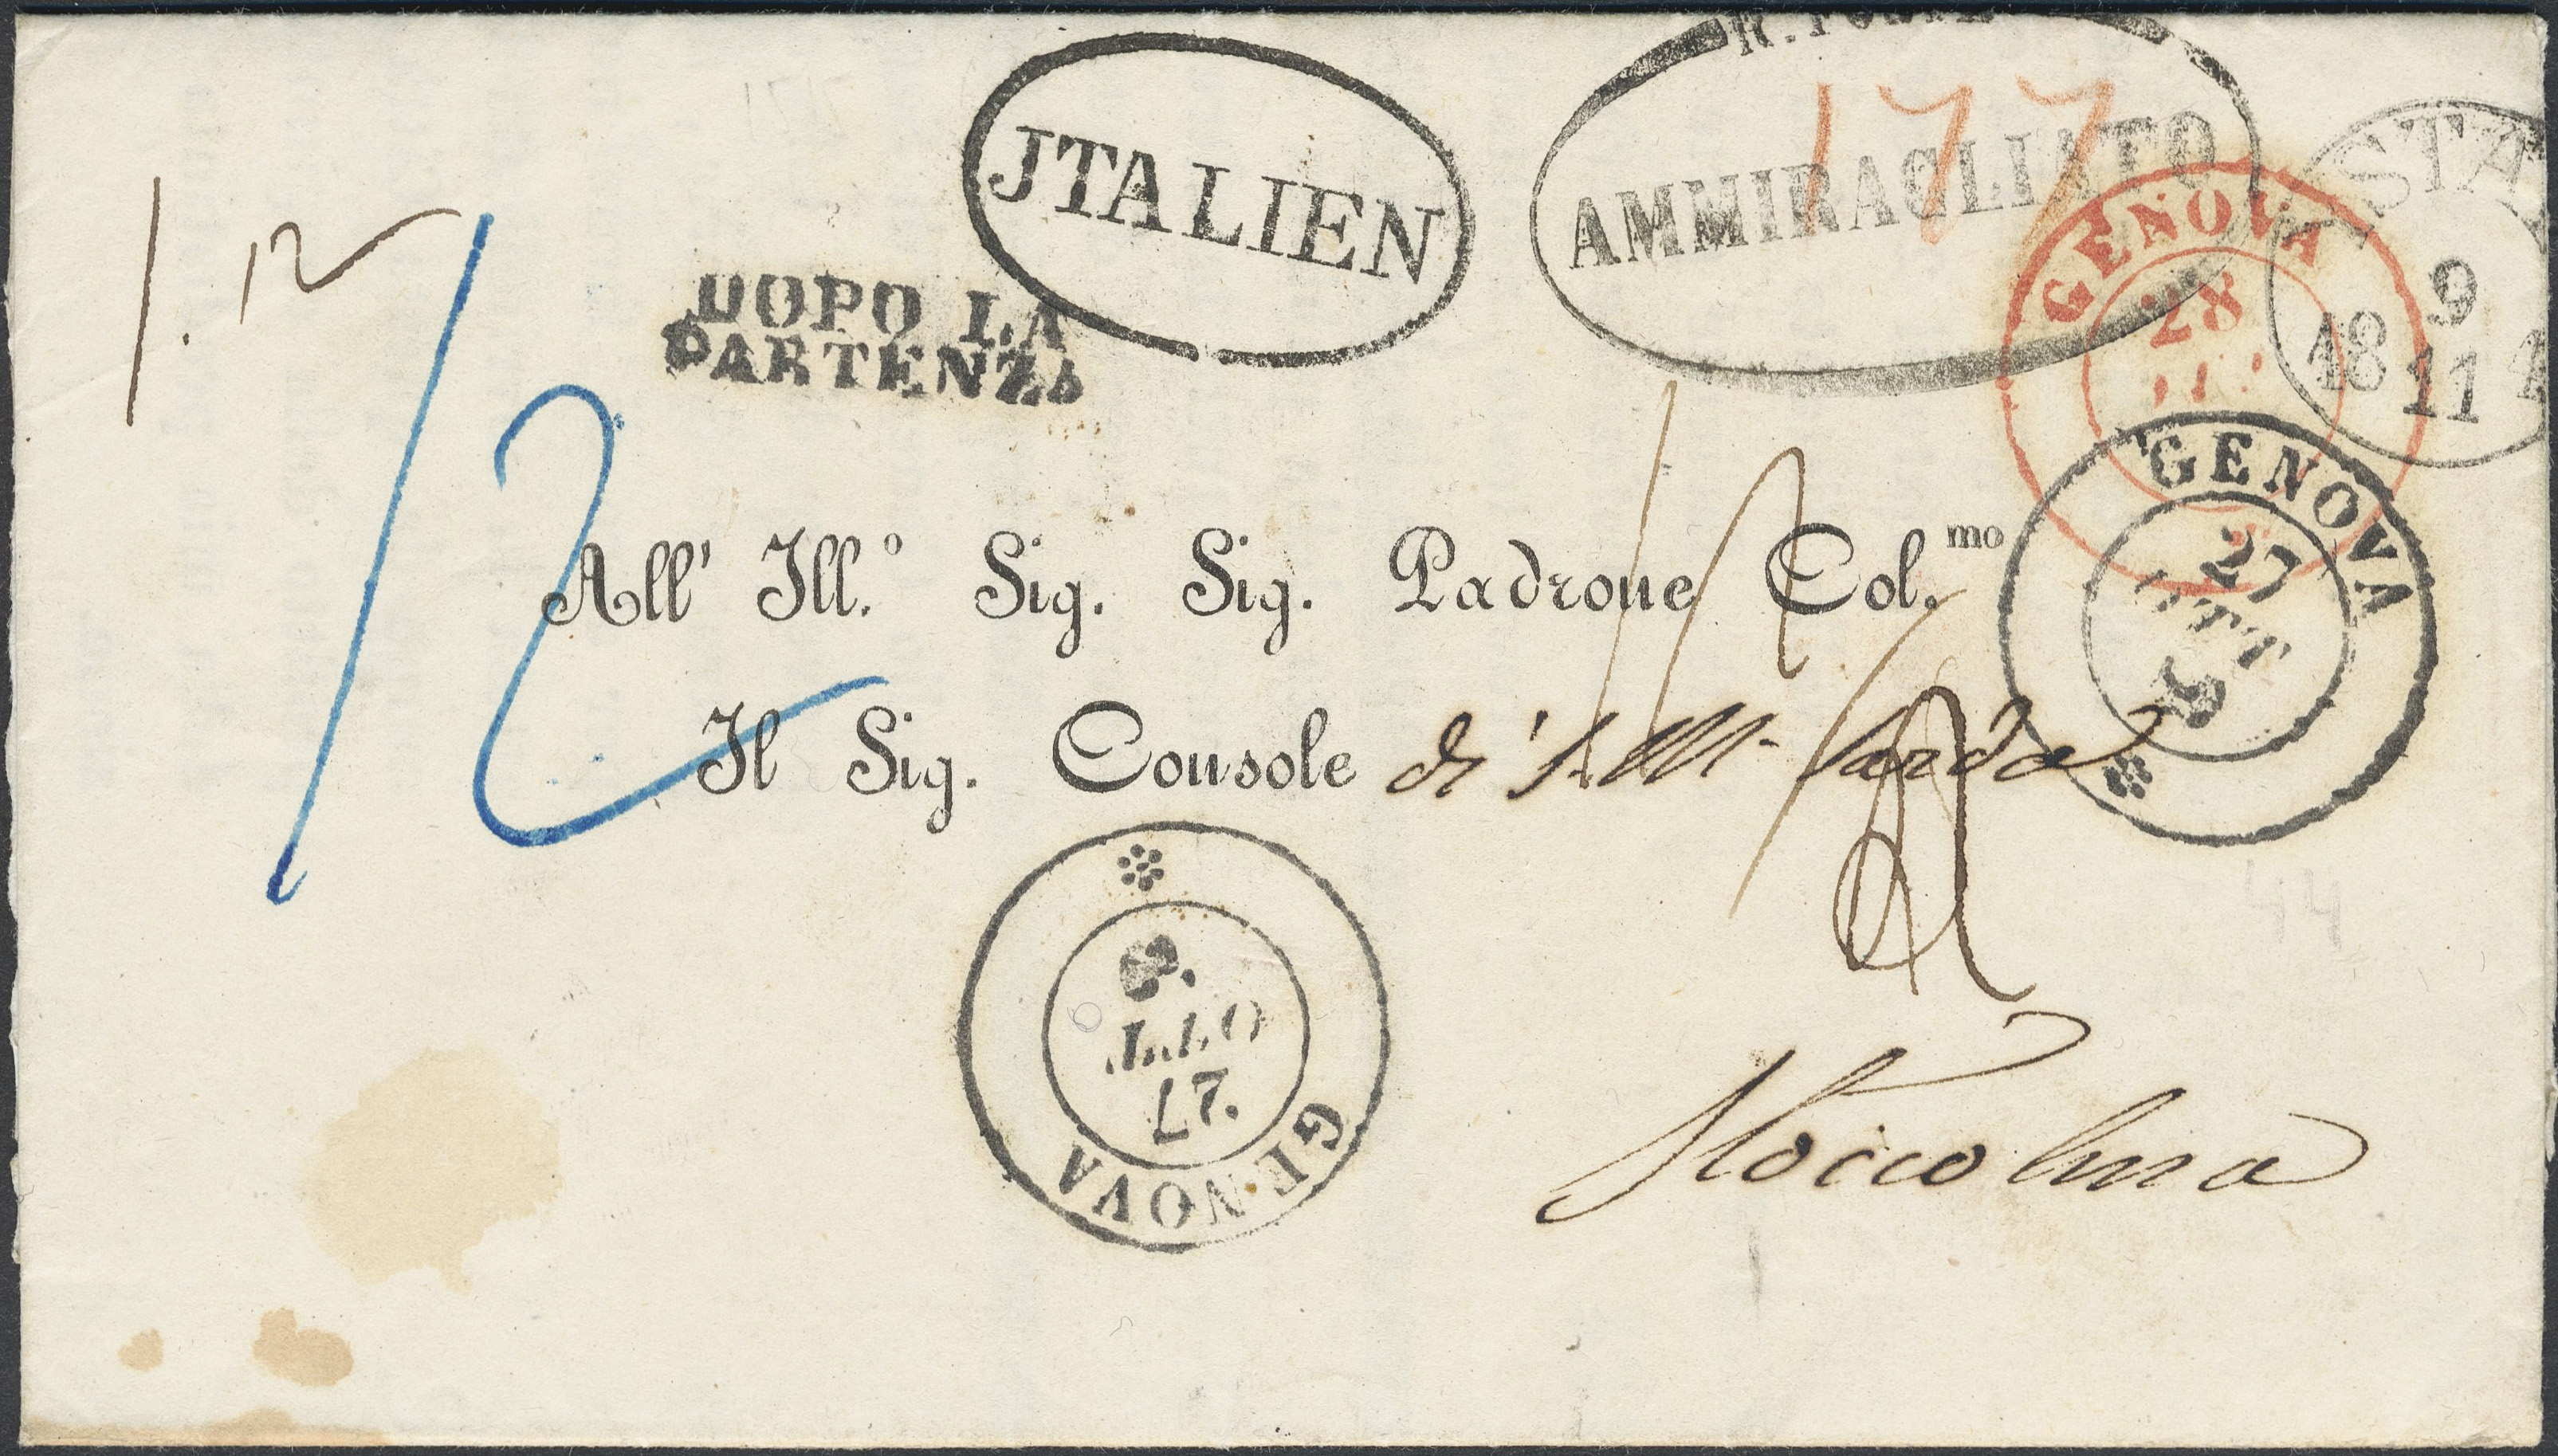 JTALIEN
177
AMMIRAGLIATO
GENOVA
28
YSTAD
9
18
11
1.12
12
DOPO LA
PARTENZA
GENOVA
27
All' Ill.º Sig. Sig. Padrone Col.mo
Il Sig. Console di S. M. Sarda
GENOVA
Stoccolma
44